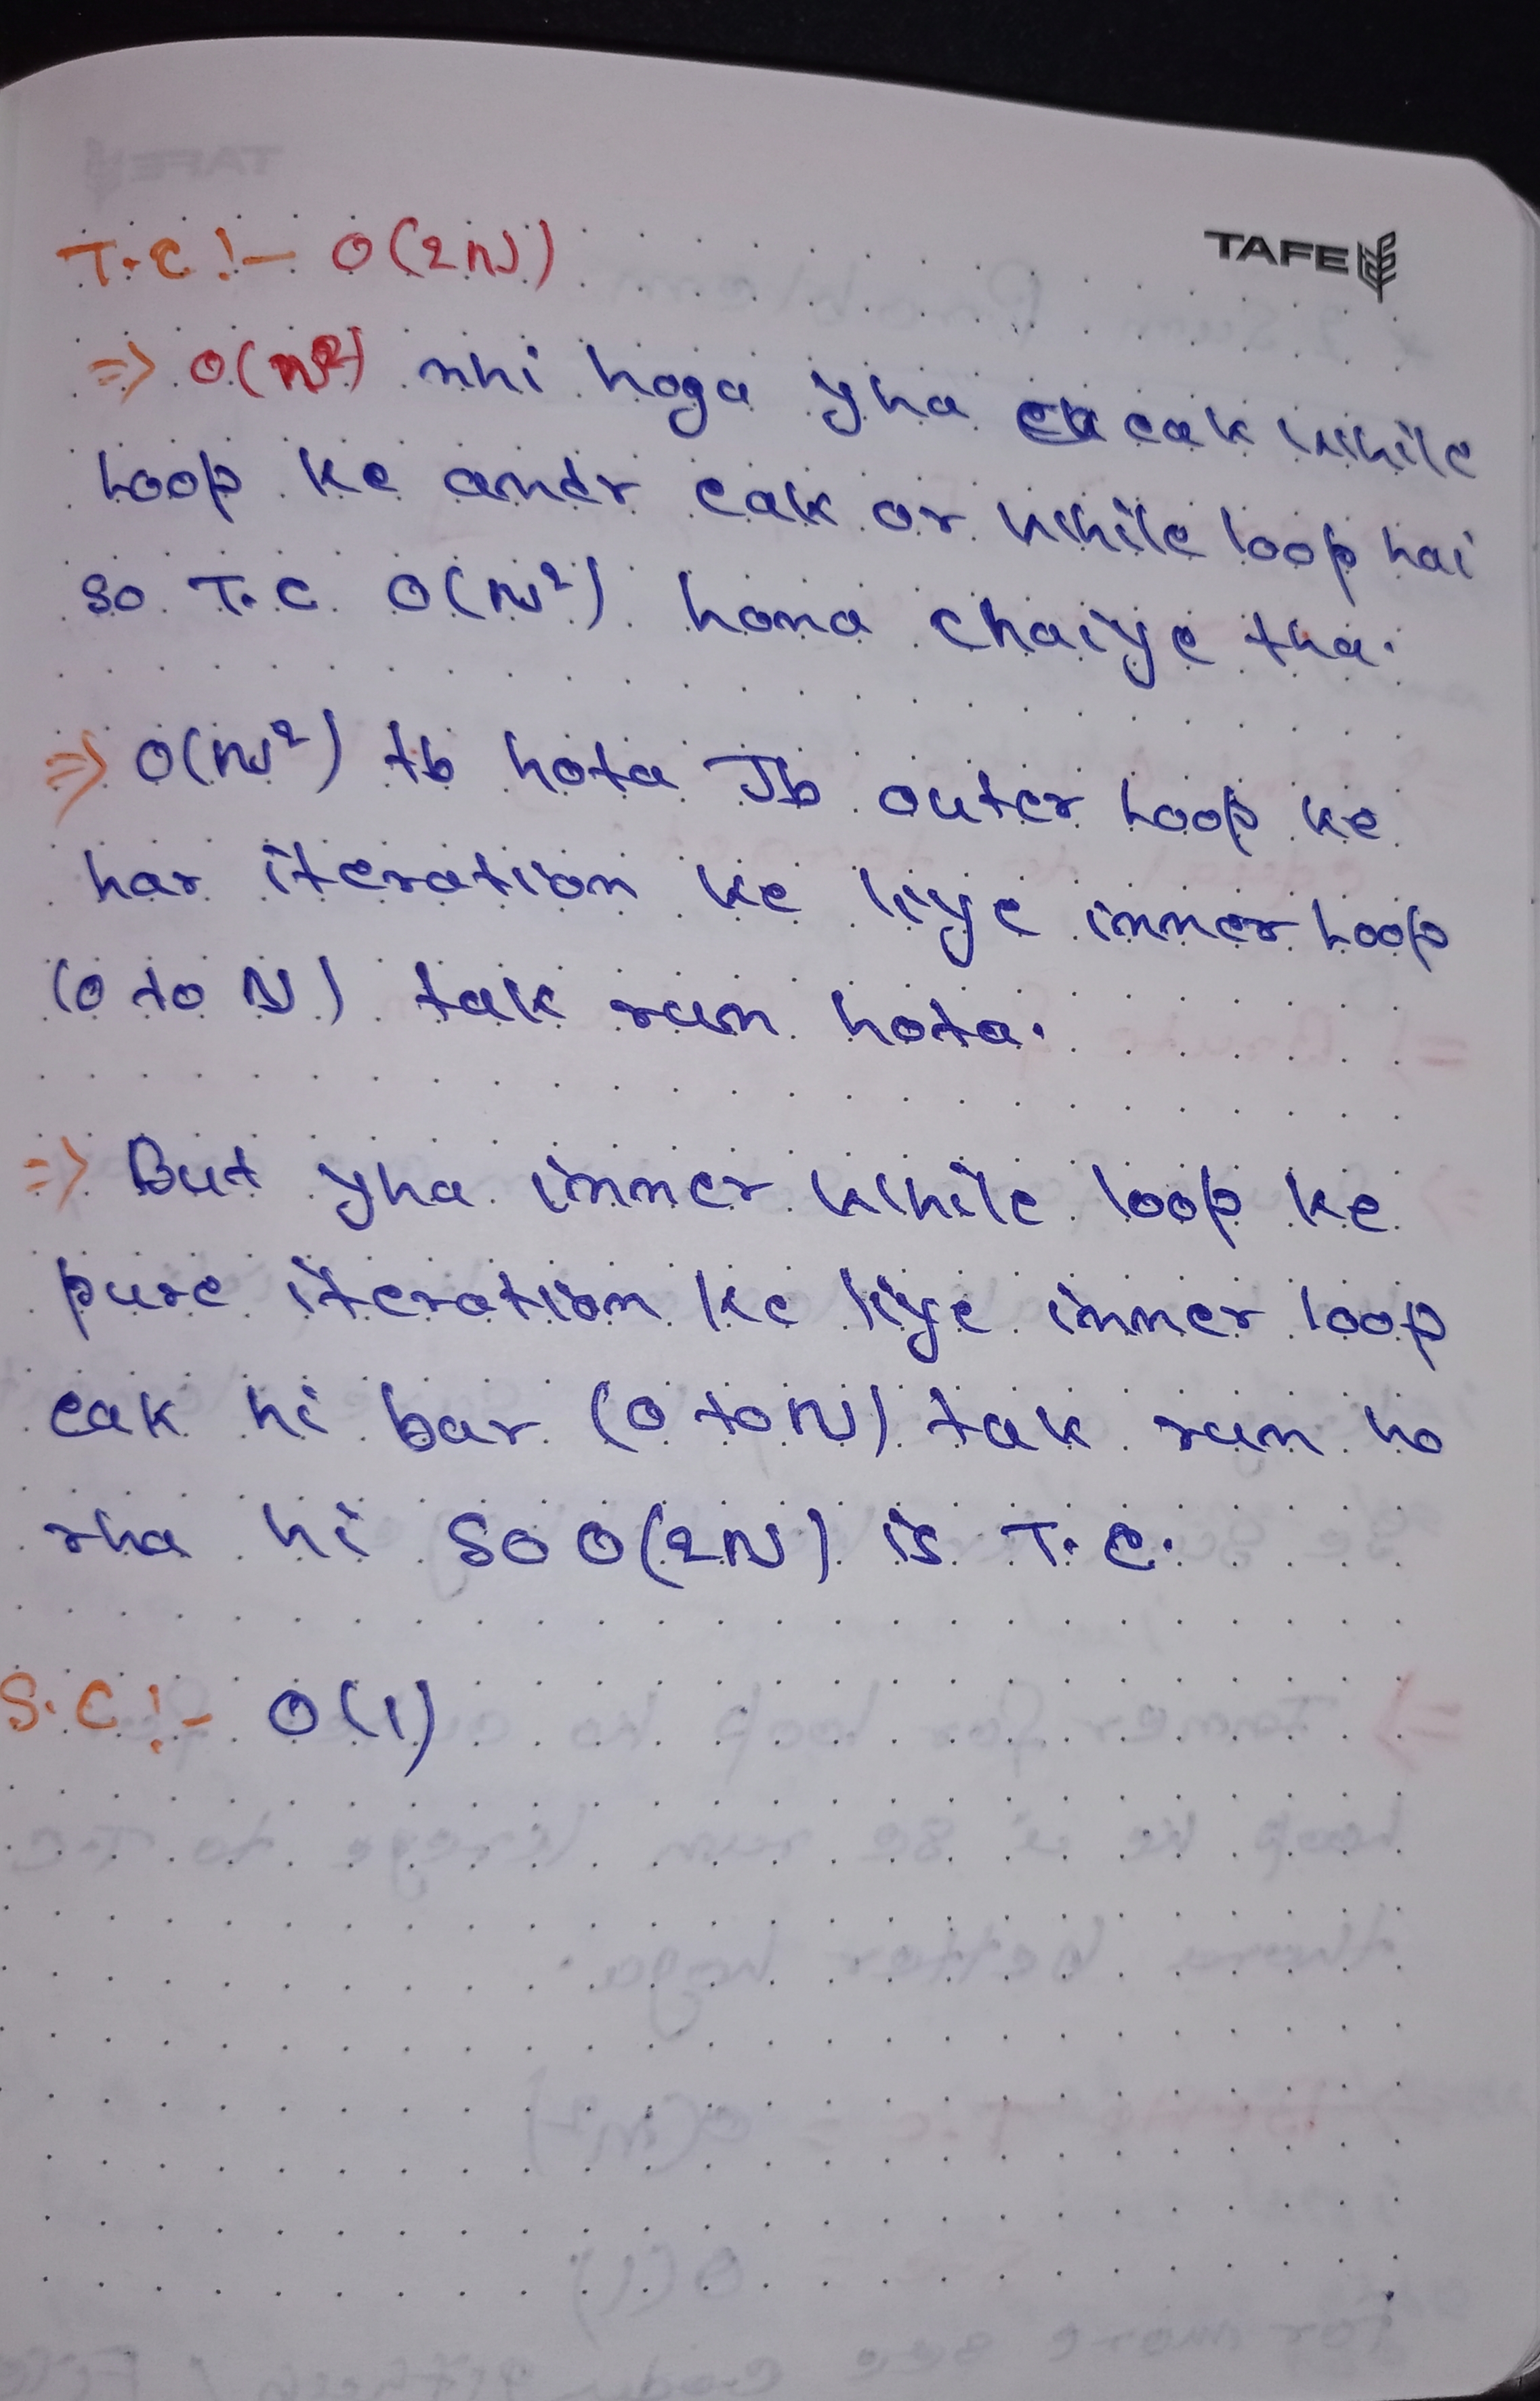 TAFE
T.C !- O(2N)
=> O(N²) nhi hoga yha eak while
Loop ke andr eak or while loop hai
so T.C O(N²) hona chaiye tha.
=> O(N²) tb hota Jb outer Loop ke
har iteration ke liye inner Loop
(0 to N) tak run hota.
=> But yha inner while loop ke
pure iteration ke liye inner loop
eak hi bar (0 to N) tak run ho
rha hi so O(2N) is T.C.
S.C !- O(1)